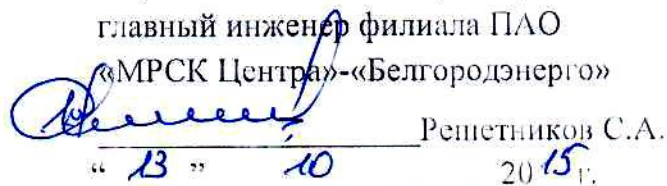 главный инженер филиала ПАО
«МРСК Центра»-«Белгородэнерго»
Решетников С.А.
“ 13 ” 10 2015 г.